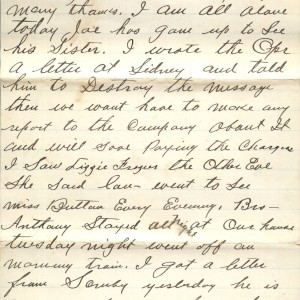 many thanks. I am all alone
today Joe has gone up to See
his Sister. I wrote the Opr
a letter at Sidney and told
him to Destroy the message
then we wont have to make any
report to the Company About It
and will Save Paying the Charges
I Saw Lizzie the Other Eve
She Said went to See
miss Dutton Every Evening. Bro-
Anthony Stayed all night at Our house
tuesday night went off on
morning train. I got a letter
from yesterday he is